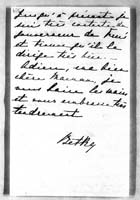 Jusqu'à présent je
suis très contente du
professeur des
et trouve qu'il la
dirige très bien.
Adieu, ma bien
chère Maman, je
vous baise les mains
et vous embrasse très
tendrement
Betthy